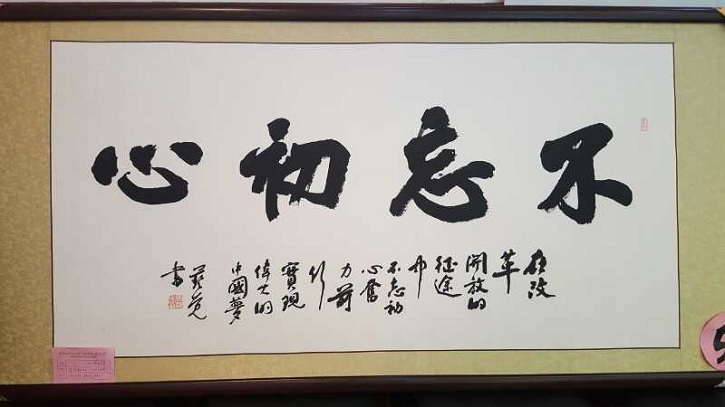 不忘初心
在改
革
开放的
征途
中
不忘初
心奋
力前
行
實現
偉大的
中國夢
書